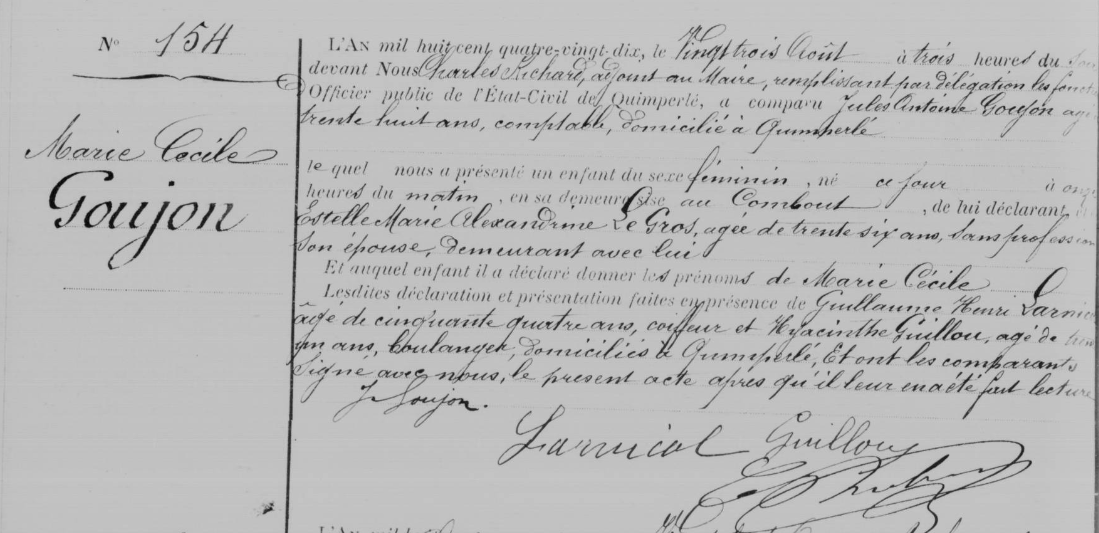 N° 154
Marie Cécile
Goujon
L'AN mil huit cent quatre-vingt-dix, le Vingt trois Août à trois heures du
devant Nous Charles Richard, adjoint au Maire, remplissant par délégation les
Officier public de l'État-Civil de Quimperlé, a comparu Jules Antoine Goujon agé
trente huit ans, comptable, domicilié à Quimperlé
le quel nous a présenté un enfant du sexe féminin, né ce jour à onze
heures du matin, en sa demeure sise au Combout, de lui déclarant
Estelle Marie Alexandrine Le Gros, agée de trente six ans, sans profession
son épouse, demeurant avec lui
Et auquel enfant il a déclaré donner les prénoms de Marie Cécile
Lesdites déclaration et présentation faites en présence de Guillaume Henri Larnicol
âgé de cinquante quatre ans, coiffeur et Hyacinthe Guillou, agé de
un ans, boulanger, domiciliés à Quimperlé, Et ont les comparants
Signé avec nous, le present acte apres qu'il leur en a été fait lecture
J Goujon.
Larnicol Guillou